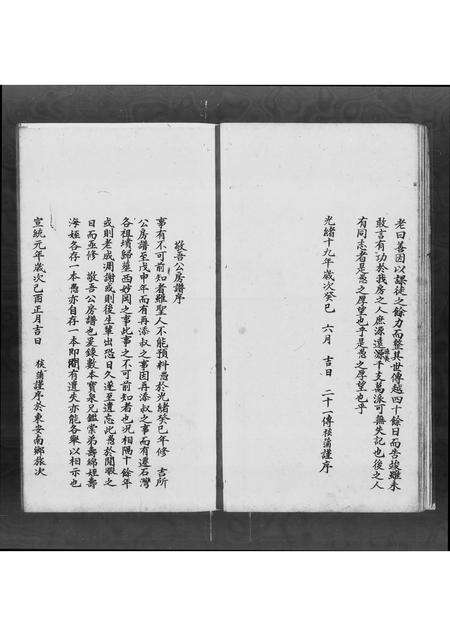 老曰善因以課徒之餘力而整其世傳越四十餘日而告竣雖未
敢言有功於我房之人庶源遠流長千支萬派可無失記也後之人
有同志者是愚之厚望也乎是愚之厚望也乎
光緒十九年歲次癸巳 六月 吉日 二十一傳 謹序
敬吾公房譜序
事有不可前知者雖聖人不能預料愚於光緒癸巳年修 吉所
公房譜至戊申年而有再添叔之事因再添叔之事而有遷石灣
各祖墳歸葬西妙岡之事此事之不可前知者也況相隔十餘年
或則老成凋謝或則後生輩出恐日久遂至遺忘此愚於閒暇之
日而亟修 敬吾公房譜也是錄數本寶泉兄鑑棠弟壽綿姪壽
海姪各存一本愚亦自存一本即間有遺失亦能各舉以相示也
宣統元年歲次己酉正月吉日 謹序於東安南鄉旅次